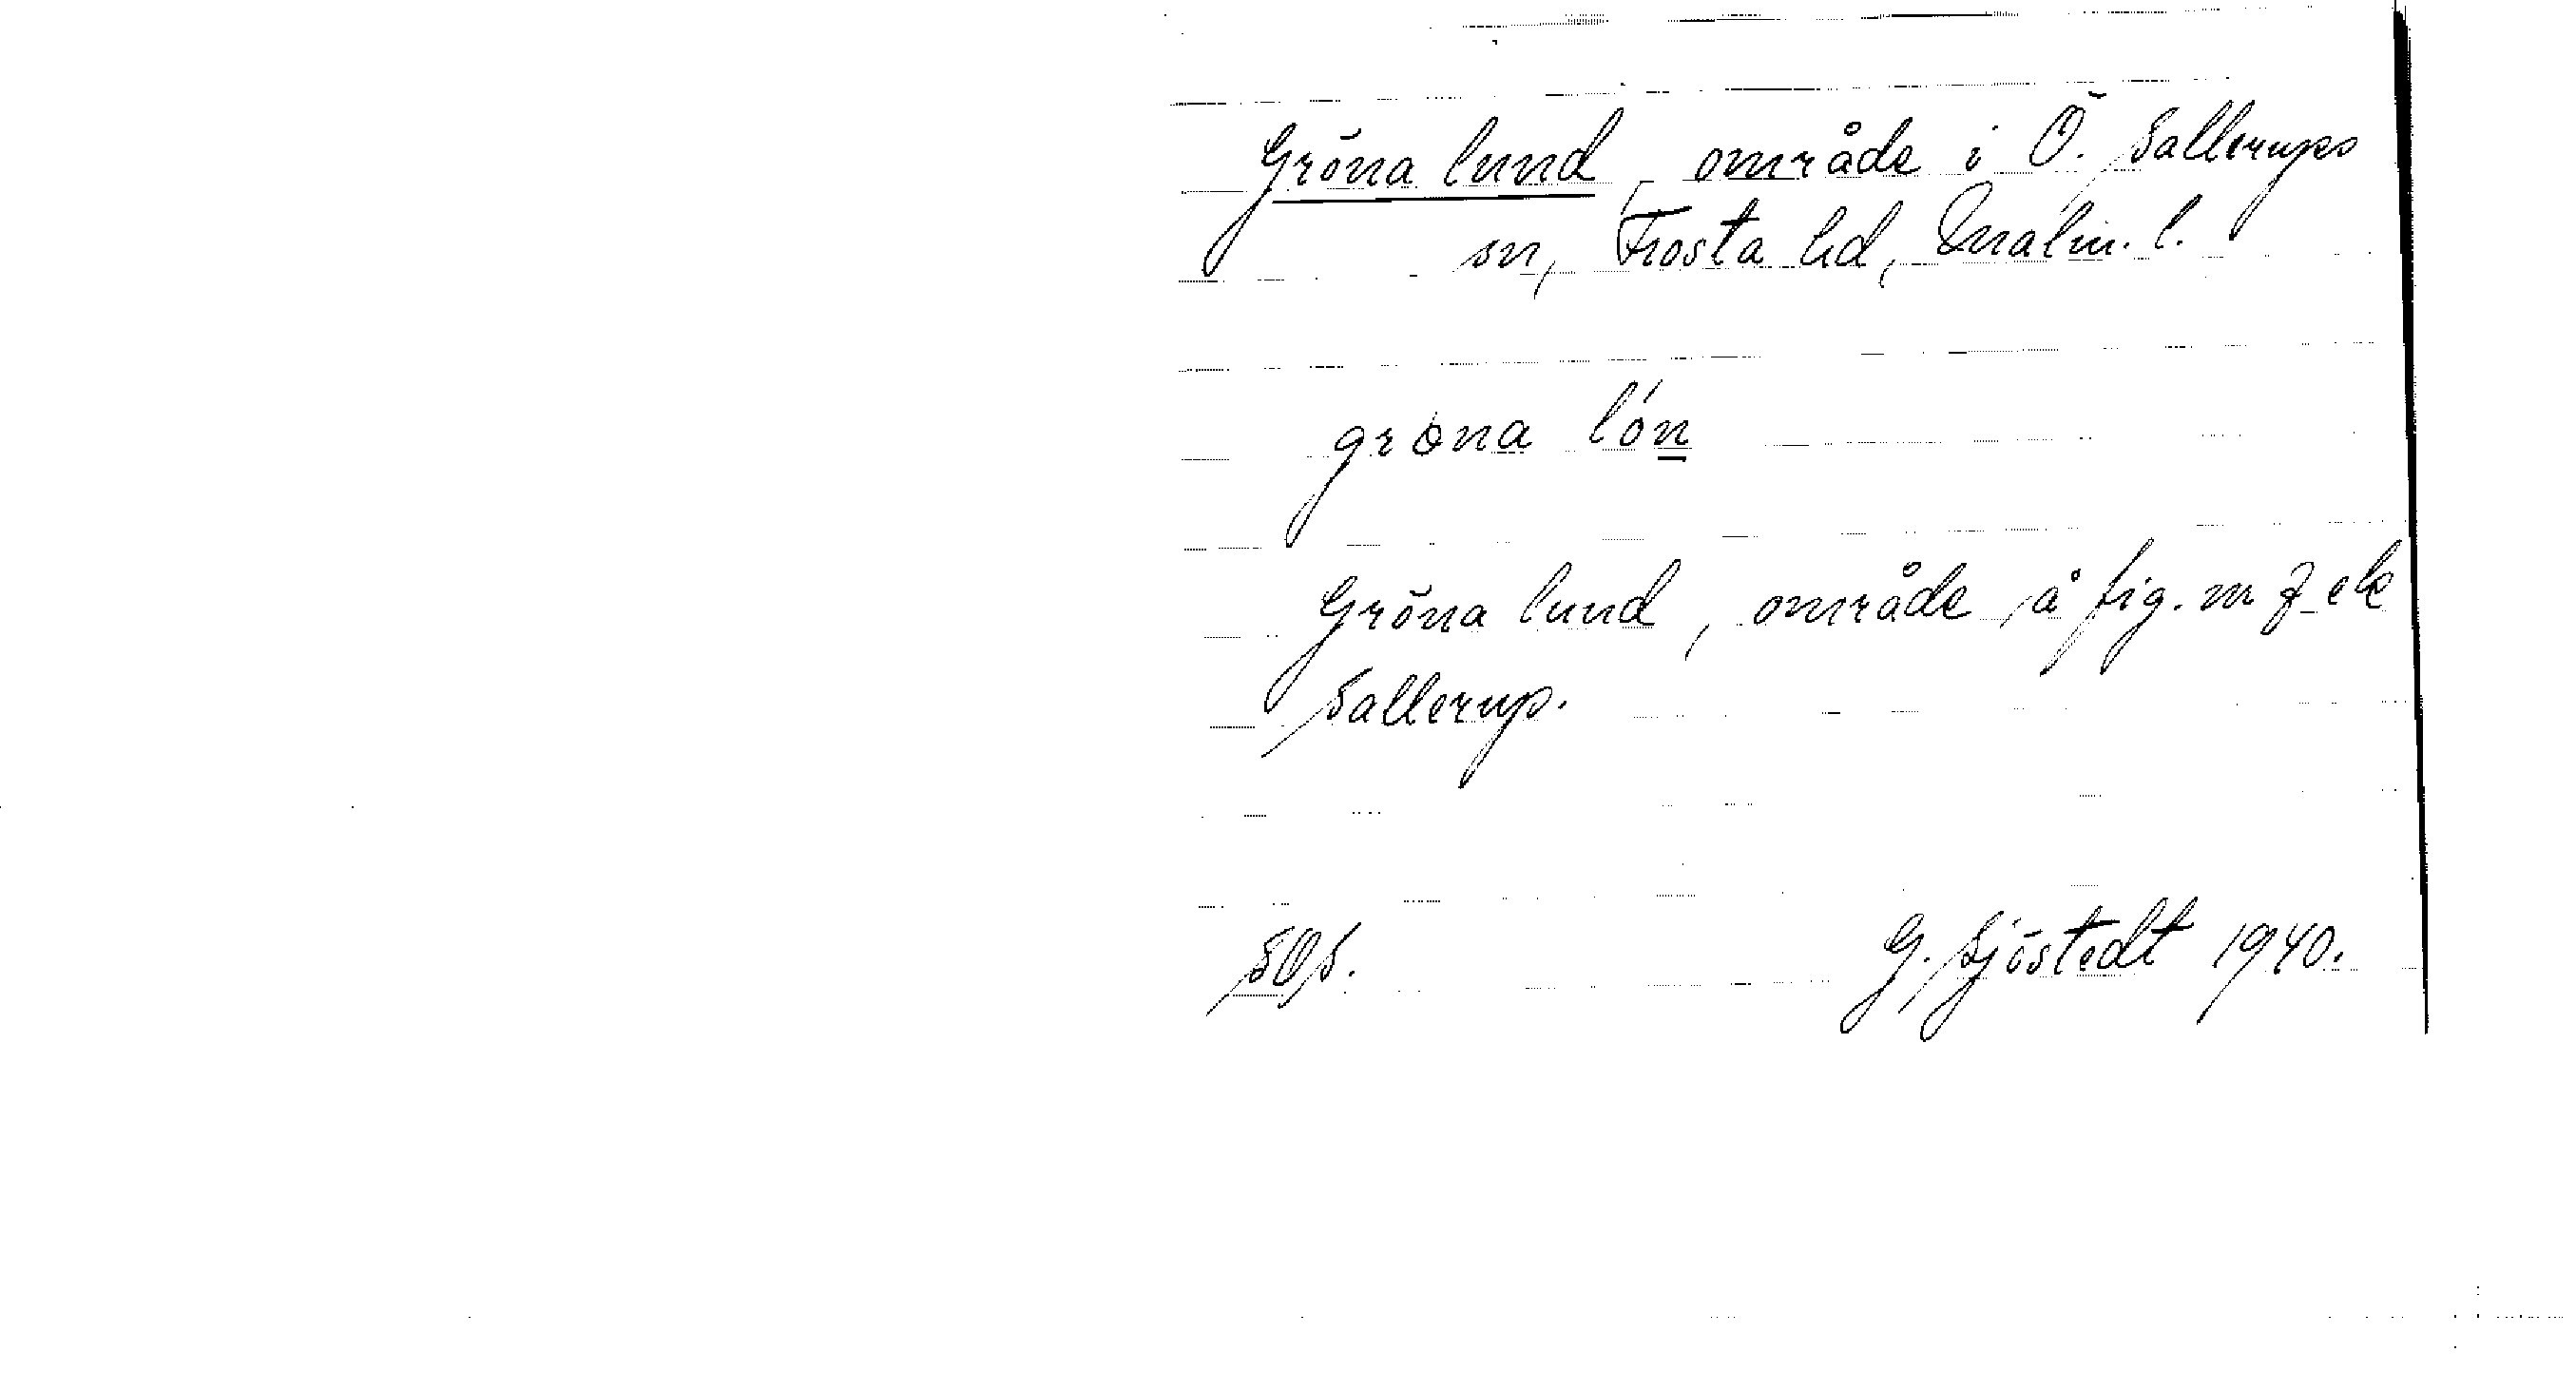 Gröna lund, område i Ö. Sallerups
sn, Frosta hd, Malm. l.
grøna lón
Gröna lund, område å fig. nr 7 ek
Sallerup.
SOS.
G. Sjöstedt 1940.